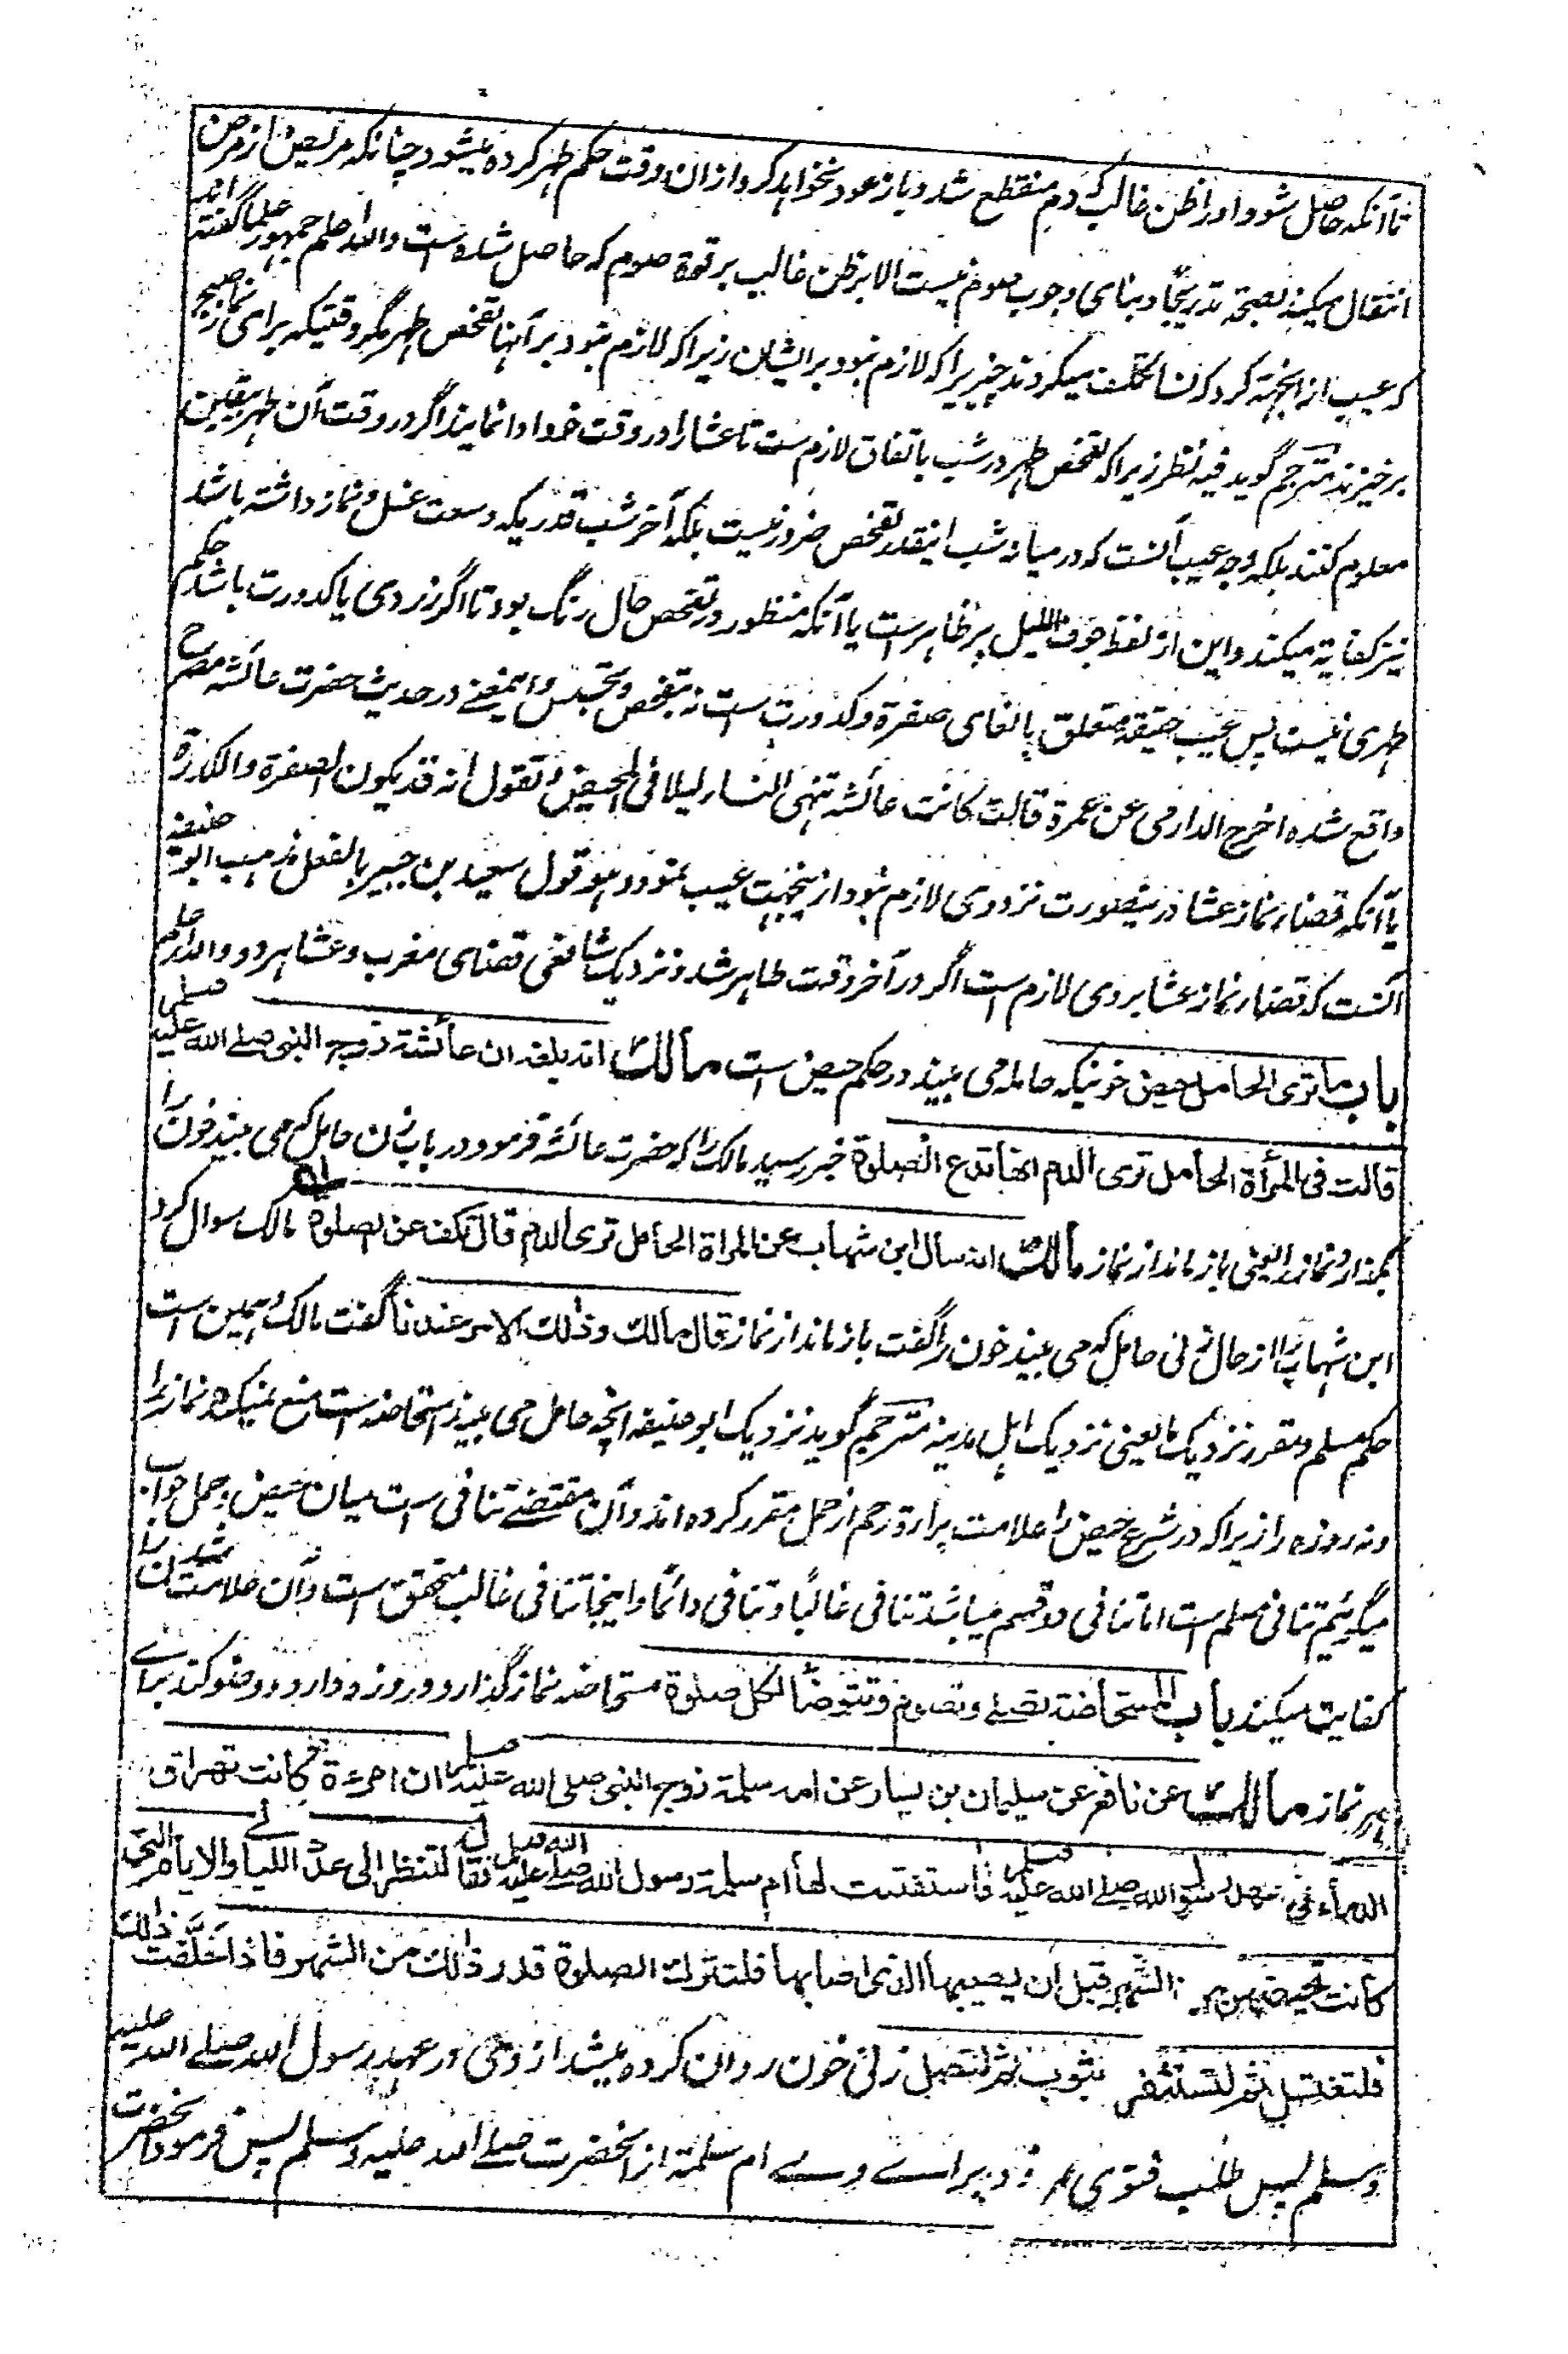 تا آنکه حاصل شود او را ظن غالب که دم منقطع شد و باز عود نخواهد کرد و از ان وقت حکم طهر کرده میشود چنانکه مریض از مرض
انتقال میکند بصحة تدریجًا و بنای وجوب صوم نیست الا بر ظن غالب بر قوة صوم که حاصل شده است والله اعلم جمهور علما گفته اند
که عیب ازینجهته کرد که نسا تکلف میکردند چیزیرا که لازم نبود بر ایشان زیرا که لازم نبود بر آنها تفحص طهر مگر وقتیکه برای نماز صبح
برخیزند مترجم گوید فیه نظر زیرا که تفحص طهر در شب باتفاق لازم ست تا عشا را در وقت خود ادا نمایند اگر در وقت آن طهر بیقین
معلوم کنند بلکه وجه عیب آنست که در میانه شب اینقدر تفحص ضرور نیست بلکه آخر شب قدریکه وسعت غسل و نماز داشته باشد
نیز کفایة میکند و این از لفظ جوف اللیل پر ظاهر است یا آنکه منظور در تفحص حال رنگ بود تا اگر زردی یا کدورت باشد حکم
طهری نیست پس عیب حقیقة متعلق بالغای صفرة و کدورت ست نه بتفحص و تجسس و اینمعنے در حدیث حضرت عائشه مصرح
واقع شده اخرج الدارمی عن عمرة قالت کانت عائشه تنهی النساء لیلا فی المحیض و تقول انه قد یکون الصفرة والکدرة
یا آنکه قضاء نماز عشا درینصورت نزد وی لازم نبود ازینجهت عیب نمود و هو قول سعید بن جبیر بالفعل مذهب ابو حنیفه
آنست که قضاء نماز عشا بر وی لازم است اگر در آخر وقت طاهر شد و نزدیک شافعی قضای مغرب و عشا هر دو والله اعلم
باب ما تری الحامل حیض خونیکه حامله می بیند در حکم حیض است مالك انه بلغه ان عائشة زوج النبی صلے الله علیه وسلم
قالت فی المرأة الحامل تری الدم انها تدع الصلوة خبر رسید مالک را که حضرت عائشه فرمود در باب زن حامل که می بیند خون را
بگذارد نماز را یعنی باز ماند از نماز مالك انه سال ابن شهاب عن المراة الحامل تری الدم قال تکف عن الصلوة مالک سوال کرد
ابن شهاب را از حال زنی حامل که می بیند خون را گفت باز ماند از نماز قال مالك وذلك الامر عندنا گفت مالک و همین است
حکم مسلم و مقرر نزدیک ما یعنی نزدیک اهل مدینه مترجم گوید نزدیک ابو حنیفه آنچه حامل می بیند استحاضه است منع نمیکند نماز را
و نه روزه را زیرا که در شرع حیض را علامت براءة رحم از حمل مقرر کرده اند و آن مقتضے تنافی است میان حیض و حمل جواب
میگوئیم تنافی مسلم است اما تنافی دو قسم میباشد تنافی غالبًا و تنافی دائمًا و اینجا تنافی غالب متحقق است و آن علامت شدن را
کفایت میکند باب المستحاضة تصلے وتصوم وتتوضأ لکل صلوة مستحاضه نماز گذارد و روزه دارد و وضو کند براے
هر نماز مالك عن نافع عن سلیمان بن یسار عن ام سلمة زوج النبی صلی الله علیه وسلم ان امرءة کانت تهراق
الدماء فی عهد رسول الله صلے الله علیه وسلم فاستفتت لها ام سلمة رسول الله صلے الله علیه وسلم فقال لتنظر الی عدد اللیالی والایام التی
کانت تحیضهن من الشهر قبل ان یصیبها الذی اصابها فلتترك الصلوة قدر ذلك من الشهر فاذا خلّفت ذلك
فلتغتسل ثم لتستثفر بثوب ثم لتصل زنی خون روان کرده میشد از وی در عهد رسول الله صلے الله علیه
وسلم پس طلب فتوی کرد براے وے ام سلمة از آنحضرت صلے الله علیه وسلم پس فرمود آنحضرت